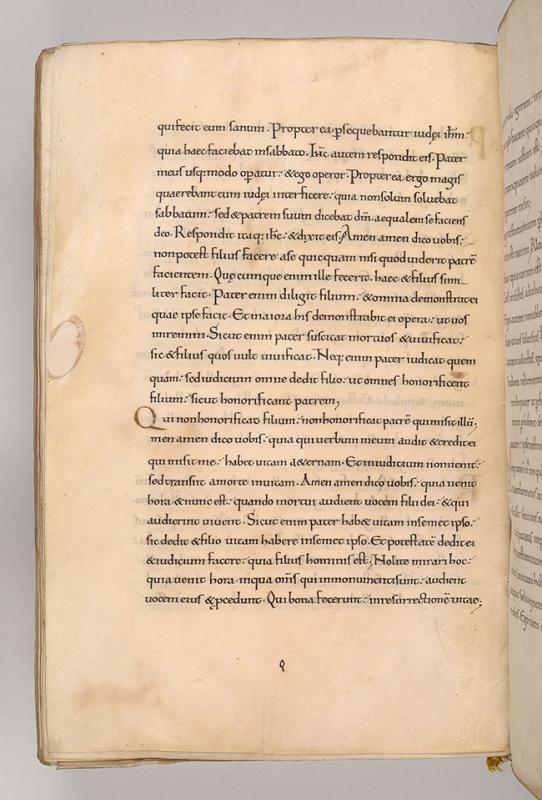 qui fecit eum sanum. Propterea persequebantur iudęi ihm̄.
quia haec faciebat insabbato. Ihc̄ autem respondit eis. Pater
meus usq: modo operatur. & ego operor. Propterea ergo magis
quaerebant eum iudęi interficere. quia nonsolum soluebat
sabbatum. sed & patrem suum dicebat dm̄. aequalem se faciens
deo. Respondit itaq: ihc̄. & dixit eis. Amen amen dico uobis.
non potest filius facere ase quicquam nisi quod uiderit patrē
facientem. Quęcumque enim ille fecerit. haec & filius simi
liter facit. Pater enim diligit filium. & omnia demonstrat ei
quae ipse facit. Et maiora his demonstrabit ei opera. ut uos
miremini. Sicut enim pater suscitat mortuos & uiuificat.
sic & filius quos uult uiuificat. Neq: enim pater iudicat quem
quam. sed iudicium omne dedit filio. ut omnes honorificent
filium. sicut honorificant patrem;
Qui nonhonorificat filium. nonhonorificat patrē qui misit illū;
men amen dico uobis. quia qui uerbum meum audit & credit ei
qui misit me. habet uitam a&ernam. Et iniudicium nonuenit.
sed transiit amorte inuitam. Amen amen dico uobis. quia uenit
hora & nunc est. quando mortui audient uocem filii dei. & qui
audierint uiuent. Sicut enim pater hab& uitam insemet ipso.
sic dedit & filio uitam habere insemet ipso. Et potestatē dedit ei
& iudicium facere. quia filius hominis est; Nolite mirari hoc.
quia uenit hora inqua om̄s qui inmonumentis sunt. audient
uocem eius & procedunt. Qui bona fecerunt. inresurrectionē uitae;